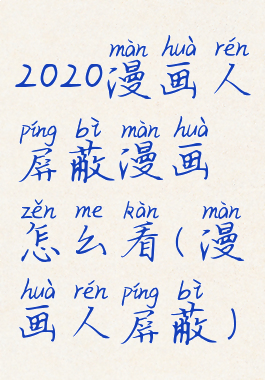 màn huà rén
2020漫画人
píng bì màn huà
屏蔽漫画
zěn me kàn màn
怎么看(漫
huà rén píng bì
画人屏蔽)